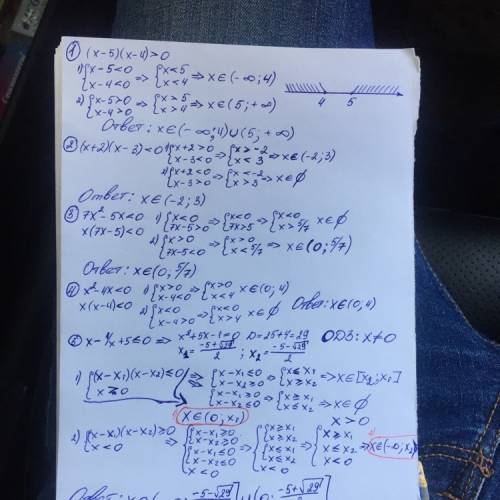 ① (x-5)(x-4)>0
1) {x-5<0 x-4<0 => {x<5 x<4 => x∈(-∞;4)
4 5
2) {x-5>0 x-4>0 => {x>5 x>4 => x∈(5;+∞)
Ответ: x∈(-∞;4)∪(5;+∞)
② (x+2)(x-3)<0 1) {x+2>0 x-3<0 => {x>-2 x<3 => x∈(-2;3)
2) {x+2<0 x-3>0 => {x<-2 x>3 => x∈∅
Ответ: x∈(-2;3)
③ 7x²-5x<0 1) {x<0 7x-5>0 => {x<0 7x>5 => {x<0 x>5/7 x∈∅
x(7x-5)<0 2) {x>0 7x-5<0 => {x>0 x<5/7 => x∈(0;5/7)
Ответ: x∈(0,5/7)
④ x²-4x<0 1) {x>0 x-4<0 => {x>0 x<4 x∈(0;4)
x(x-4)<0 2) {x<0 x-4>0 => {x<0 x>4 x∈∅ Ответ: x∈(0,4)
x-1/x+5≤0 => x²+5x-1=0 D=25+4=29 ОДЗ: x≠0
x₁=(-5+√29)/2; x₂=(-5-√29)/2
1) {(x-x₁)(x-x₂)≤0 x≥0 => {x-x₁≤0 x-x₂≥0 => {x≤x₁ x≥x₂ => x∈[x₂;x₁]
{x-x₁≥0 x-x₂≤0 => {x≥x₁ x≤x₂ => x∈∅
x∈(0,x₁) x>0
2) {(x-x₁)(x-x₂)≥0 x<0 => {x-x₁≥0 x-x₂≥0 {x-x₁≤0 x-x₂≤0 x<0 => {x≥x₁ x≥x₂ {x≤x₁ x≤x₂ x<0 => {x≥x₁ x≤x₂ x≤0 => x∈(-∞;x₂)